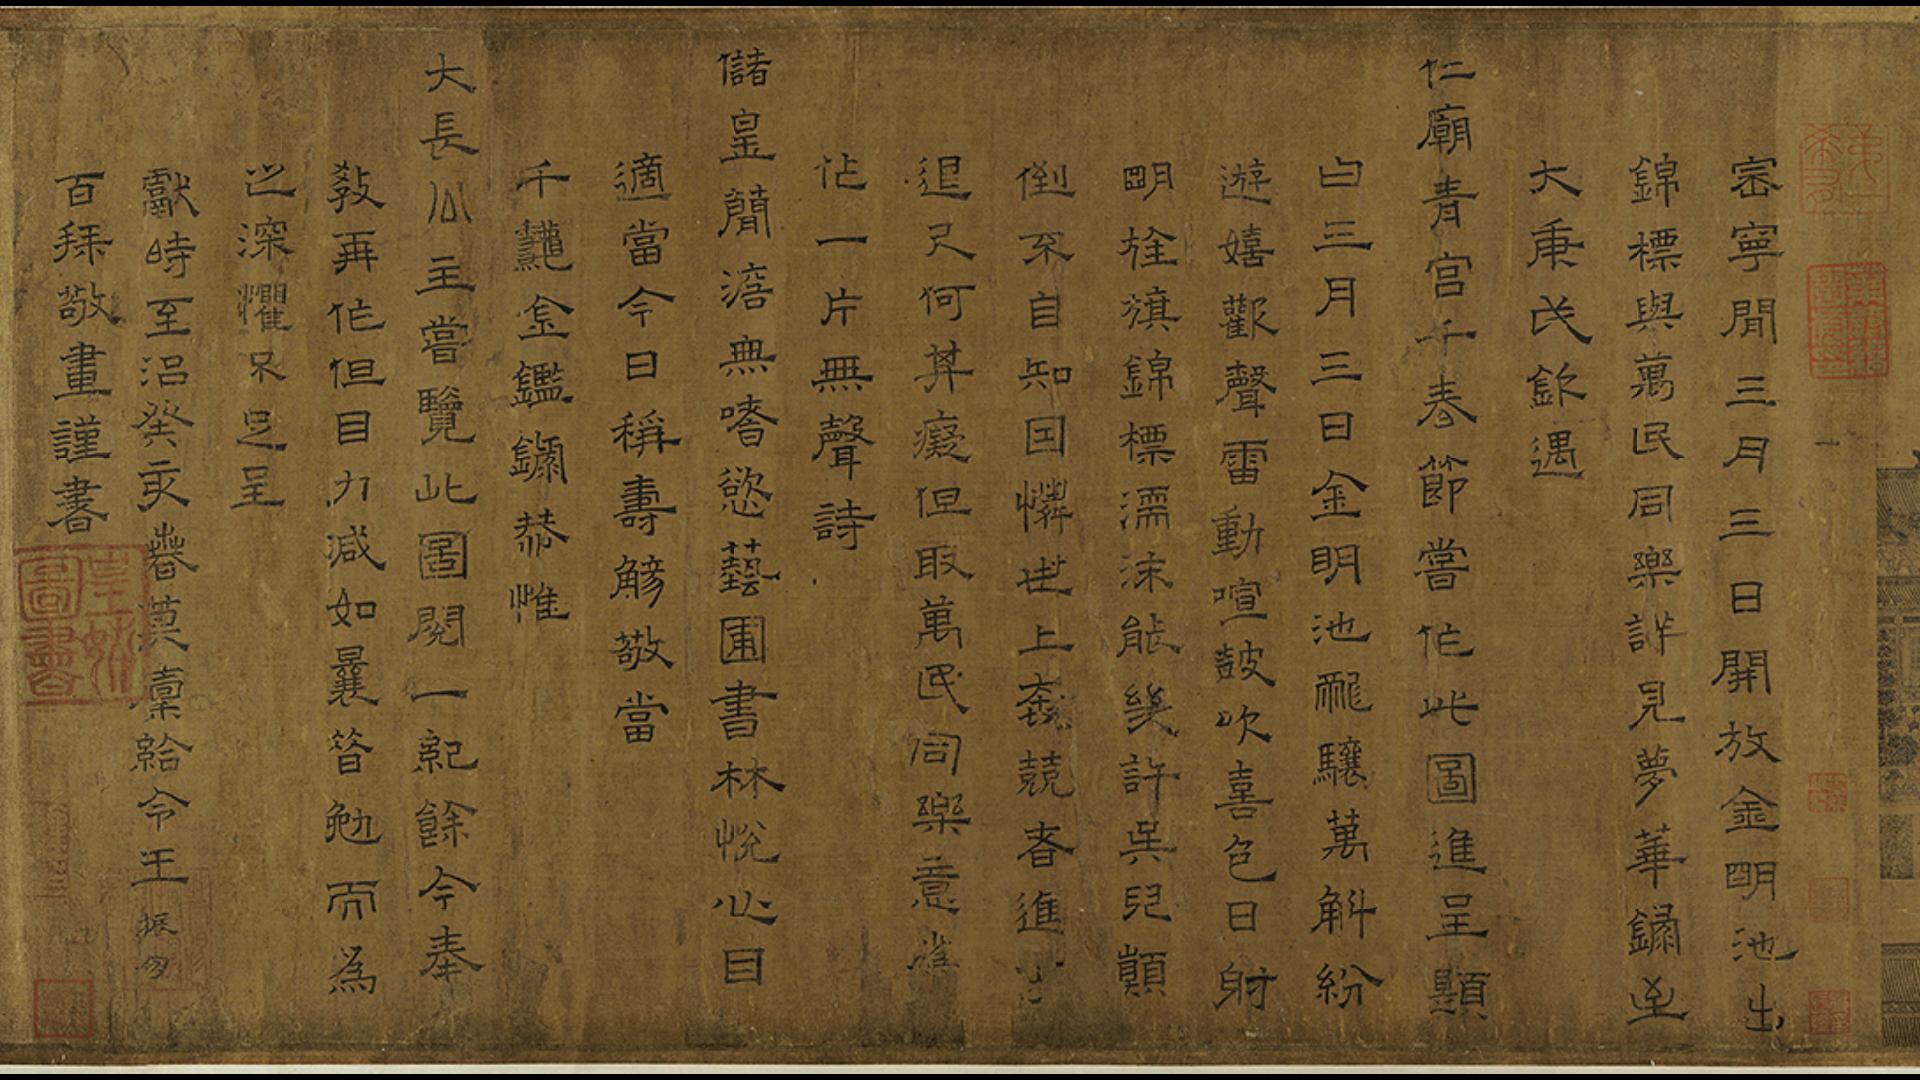 崇寧間三月三日開放金明池出
錦標與萬民同樂詳見夢華錄至
大庚戌欽遇
仁廟青宮千春節嘗作此圖進呈題
曰三月三日金明池龍驤萬斛紛
遊嬉歡聲雷動喧鼓吹喜色日射
明栓旗錦標濡沫能幾許吳兒顛
倒不自知因憐世上奔競者進
退尺何其癡但取萬民同樂意
作一片無聲詩
儲皇簡淡無嗜慾藝圃書林悅心目
適當今日稱壽觴敬當
千龝金鑑錄恭惟
大長公主嘗覽此圖閱一紀餘今奉
教再作但目力減如曩昔勉而為
之深懼不足呈
獻時至治癸亥春莫廩給令王振勿
百拜敬畫謹書